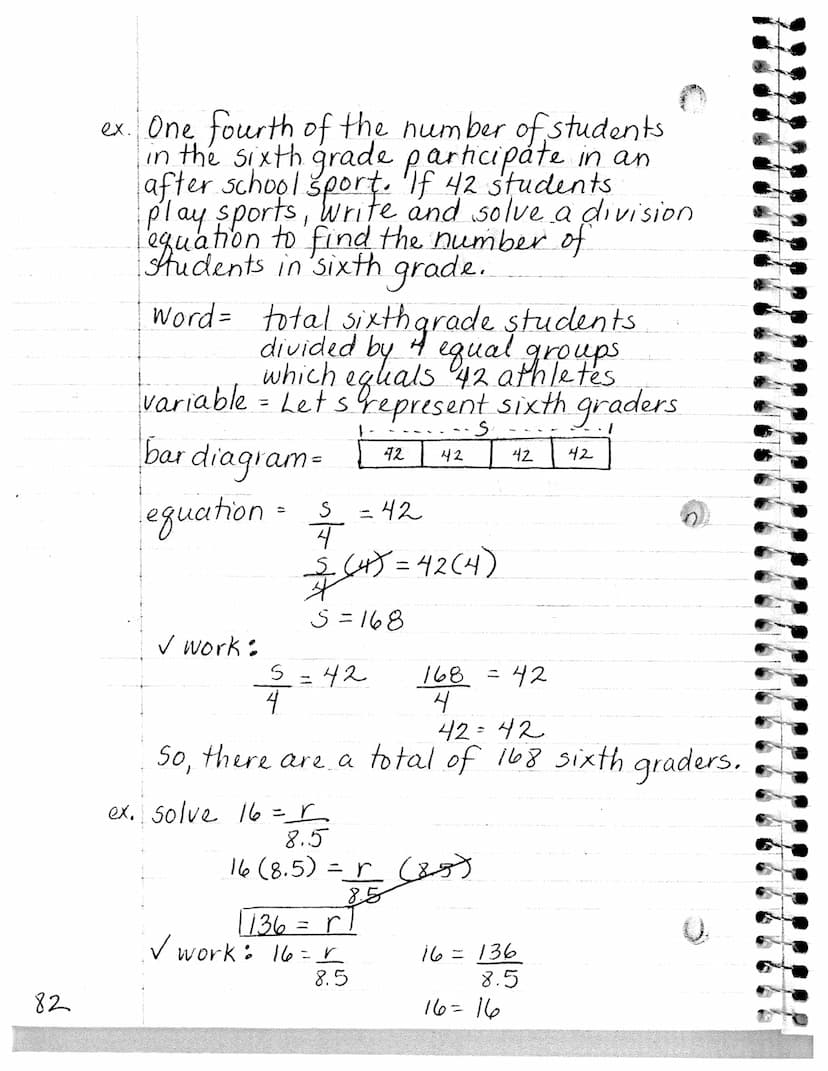 ex. One fourth of the number of students
in the sixth grade participate in an
after school sport. If 42 students
play sports, write and solve a division
equation to find the number of
students in sixth grade.
word = total sixth grade students
divided by 4 equal groups
which equals 42 athletes
variable = Let s represent sixth graders
S
bar diagram = 42 42 42 42
equation = s/4 = 42
s/4 (4) = 42(4)
s = 168
✓ work:
s/4 = 42 168/4 = 42
42 = 42
So, there are a total of 168 sixth graders.
ex. solve 16 = r/8.5
16(8.5) = r/8.5 (8.5)
136 = r
✓ work: 16 = r/8.5 16 = 136/8.5
16 = 16
82